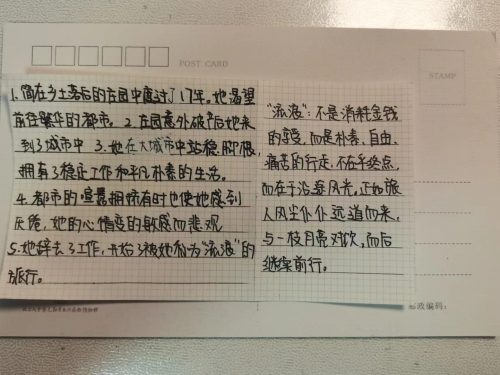 POST CARD
STAMP
1.简在乡土落后的庄园中度过了17年。她渴望
前往繁华的都市。2.庄园意外破产后她来
到了城市中 3.她在大城市中站稳脚根,
拥有了稳定工作和平凡朴素的生活。
4.都市的喧嚣拥挤有时也使她感到
厌倦,她的心情变的敏感而悲观
5.她辞去了工作,开始了被她称为“流浪”的
旅行。
“流浪”不是消耗金钱
的享受,而是朴素、自由、
痛苦的行走,不在乎终点,
而在于沿途风光,正如旅
人风尘仆仆远道而来,
与一枝月亮对饮,而后
继续前行。
邮政编码: